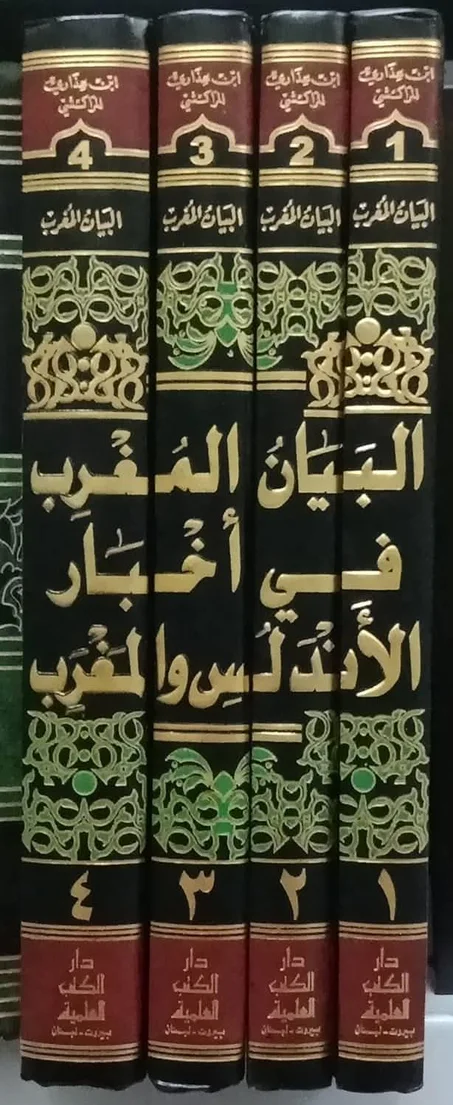 ابن عذاري
المراكشي
1
البيان المغرب
ابن عذاري
المراكشي
2
البيان المغرب
ابن عذاري
المراكشي
3
البيان المغرب
ابن عذاري
المراكشي
4
البيان المغرب
البَيَانُ المُغْرِب
في أخْبَار
الأَنْدَلُسِ والمَغْرِب
١
دار
الكتب
العلمية
بيروت - لبنان
٢
دار
الكتب
العلمية
بيروت - لبنان
٣
دار
الكتب
العلمية
بيروت - لبنان
٤
دار
الكتب
العلمية
بيروت - لبنان